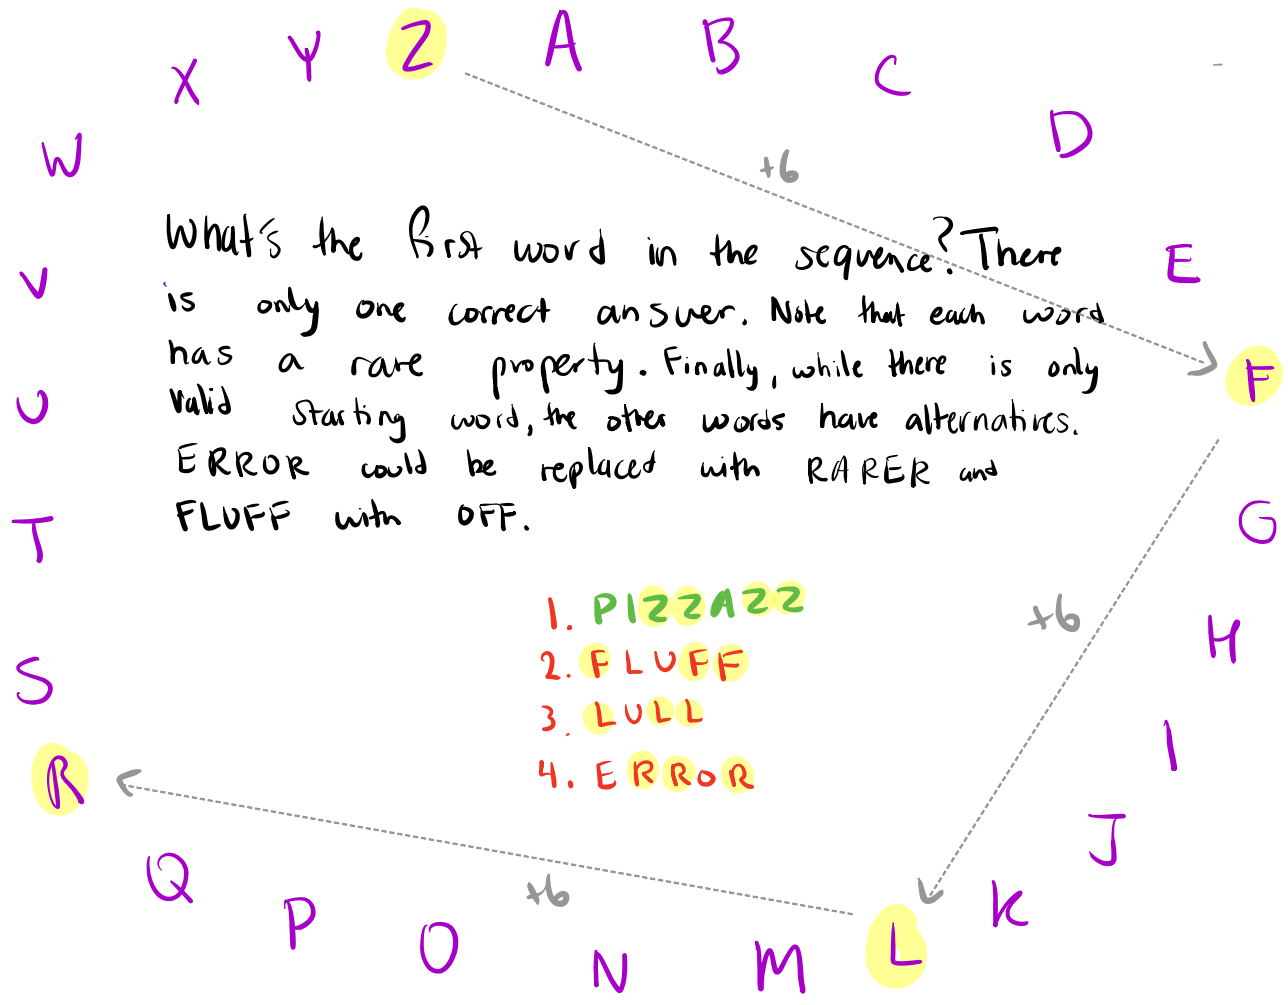 X Y Z A B C
W D
What's the first word in the sequence? There
is only one correct answer. Note that each word
has a rare property. Finally, while there is only
valid starting word, the other words have alternatives.
ERROR could be replaced with RARER and
FLUFF with OFF.
+6
E
V
F
U
G
T
1. PIZZAZZ
2. FLUFF
3. LULL
4. ERROR
+6
H
S
I
R
J
Q
+6
K
P O N M L